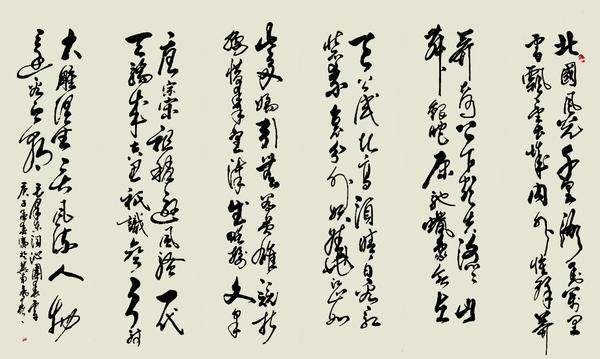 北國風光千里冰封萬里
雪飄望長城内外惟餘莽
莽大河上下頓失滔滔山
舞銀蛇原馳蠟象欲與
天公試比高須晴日看紅
裝素裹分外妖嬈江山如
此多嬌引無數英雄競折
腰惜秦皇漢武略輸文采
唐宗宋祖稍遜風騷一代
天驕成吉思汗衹識彎弓射
大雕俱往矣數風流人物
還看今朝
毛澤東詞沁園春雪
庚子